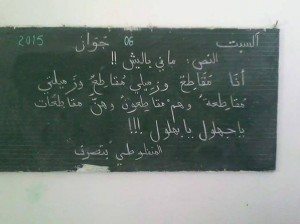 السبت 06 جوان 2015
النص: ما في باليش !!
أنا مقاطع وزميلي مُقاطعٌ وزميلتي
مقاطعة وهم مقاطعون وهنّ مقاطعات
يا جهلول يا بهلول !!!
المنفلوطي "بتصرف"